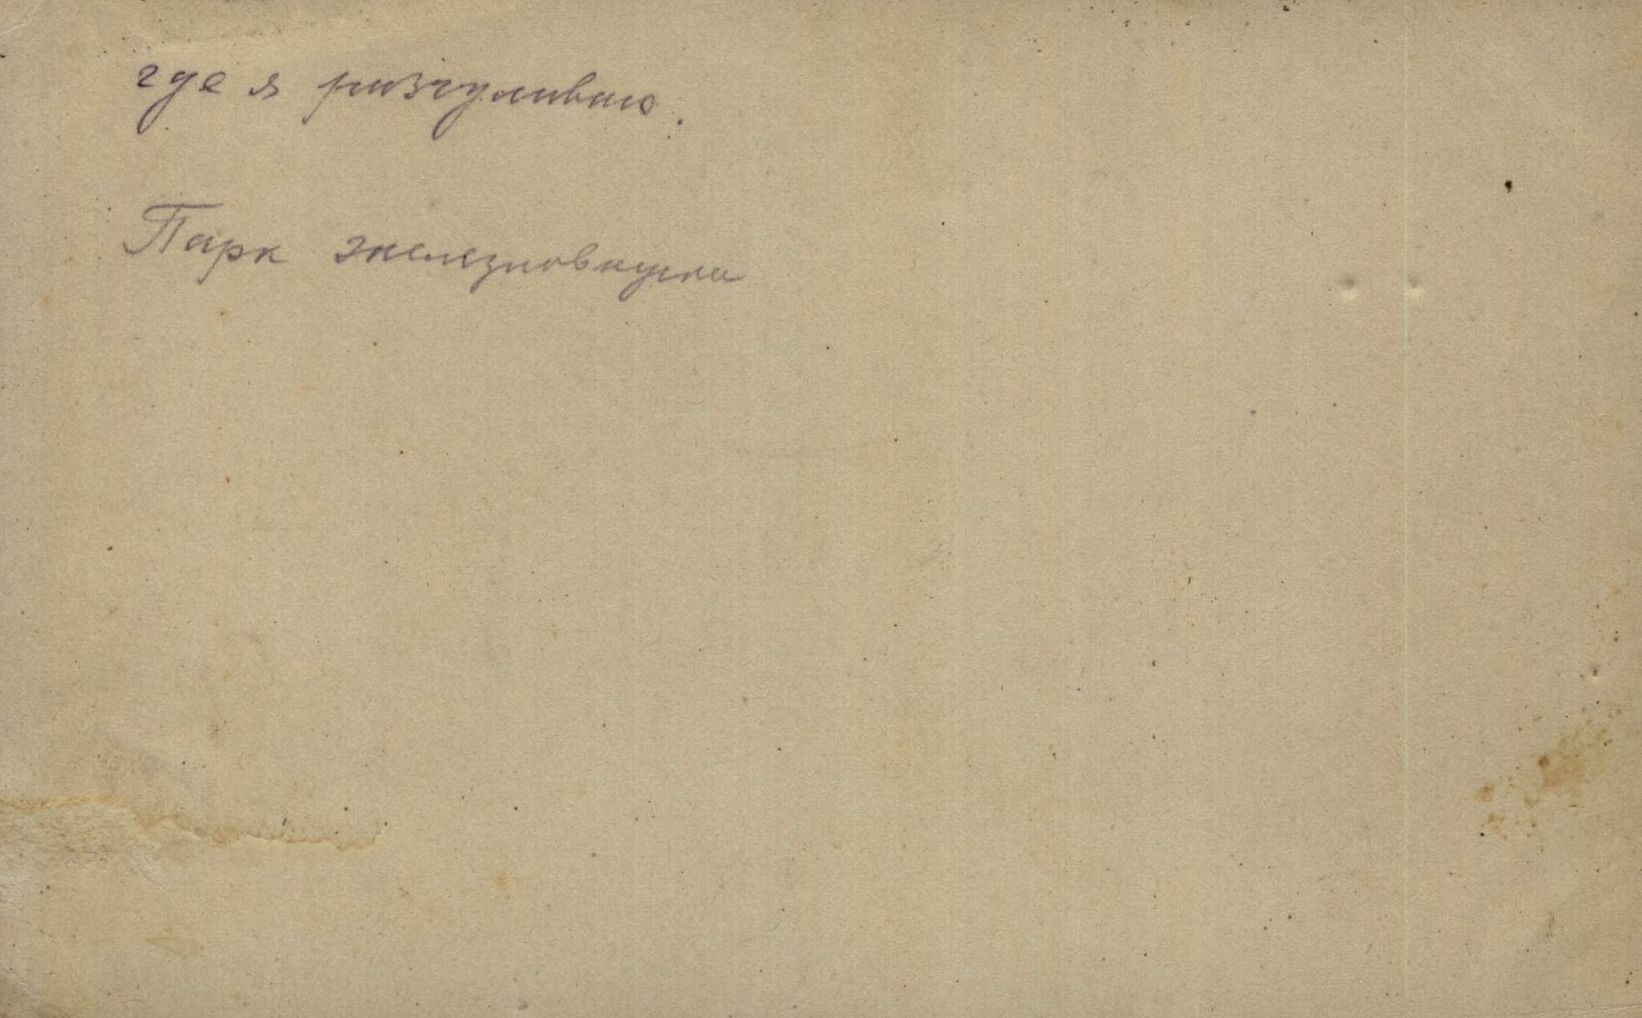 где я разгуливаю.
Парк железноводска